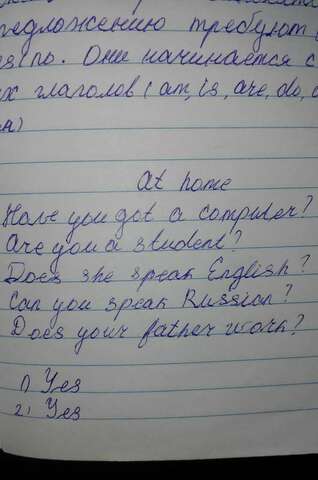 предложению требуют
Они начинается с
глаголов (am, is, are, do,
At home
Have you got a computer?
Are you a student?
Does she speak English?
Can you speak Russian?
Does your father work?
1) Yes
2) Yes